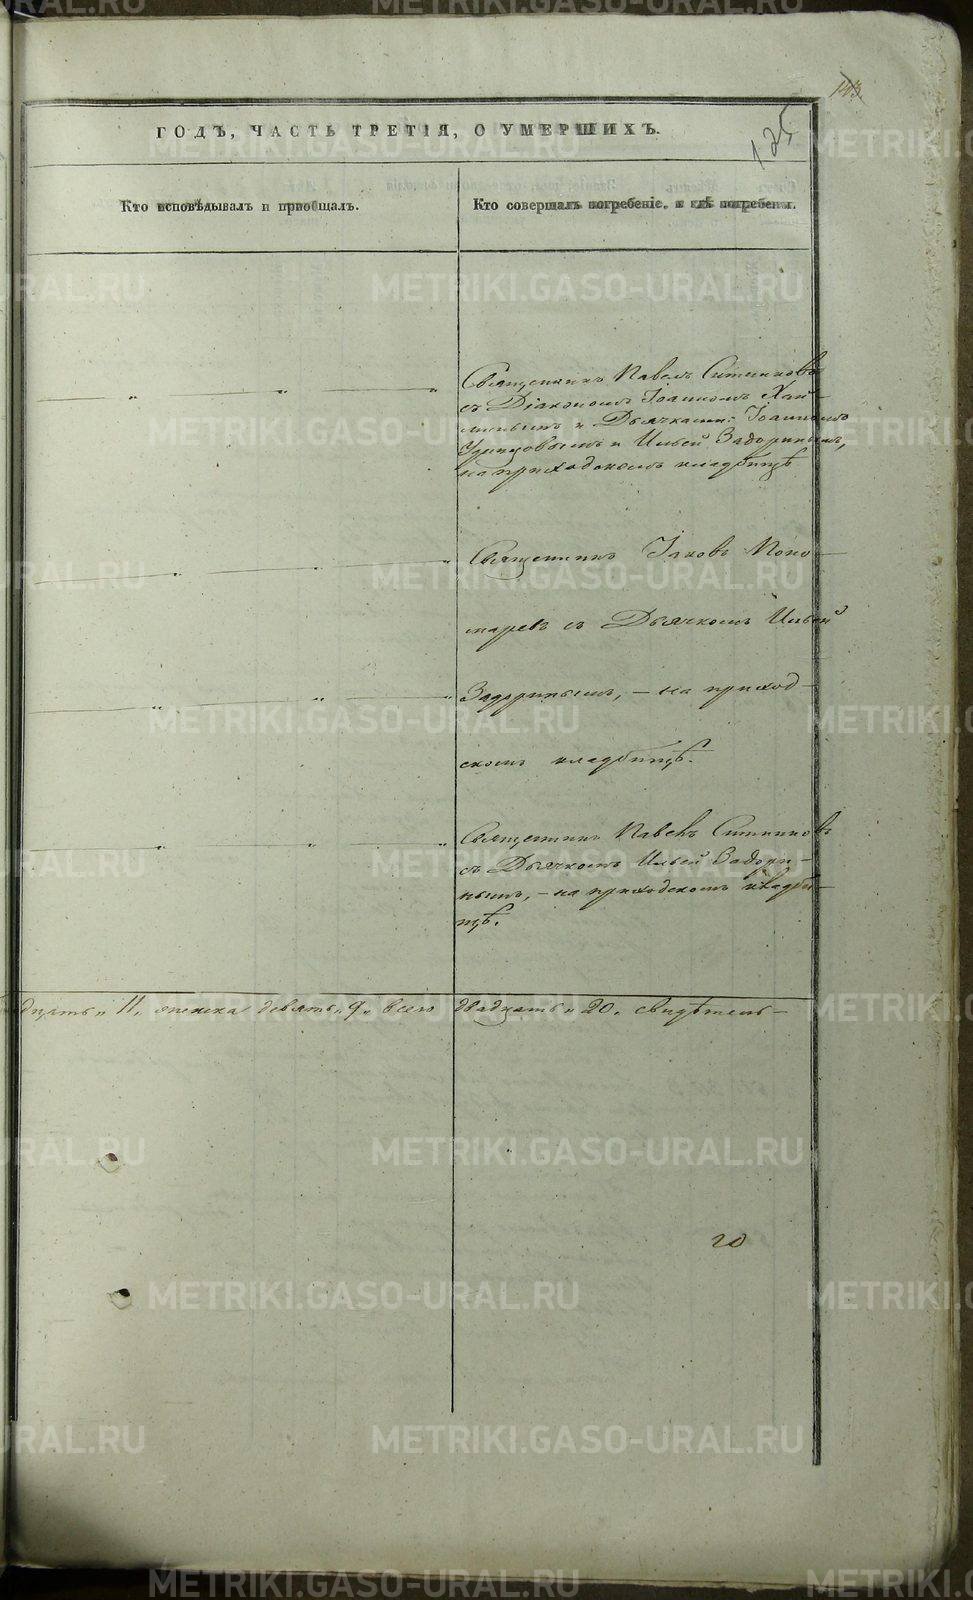 143.
125
ГОДЪ, ЧАСТЬ ТРЕТІЯ, О УМЕРШИХЪ.
Кто исповѣдывалъ и пріобщалъ.
Кто совершалъ погребеніе, и гдѣ погребены.
Священникъ Павелъ Ситниковъ
съ Діакономъ Іоанномъ Хан-
жинымъ и Дьячками: Іоанномъ
Удинцовымъ и Ильей Задоринымъ,
на приходскомъ кладбищѣ
Священникъ Іаковъ Поно-
маревъ съ Дьячкомъ Ильей
Задоринымъ, – на приход-
скомъ кладбищѣ.
Священникъ Павелъ Ситниковъ
съ Дьячкомъ Ильей Задори-
нымъ, – на приходскомъ кладби-
щѣ.
дцать „ 11, женска девять „ 9 „ всего двадцать „ 20, свидѣтель-
20
METRIKI.GASO-URAL.RU